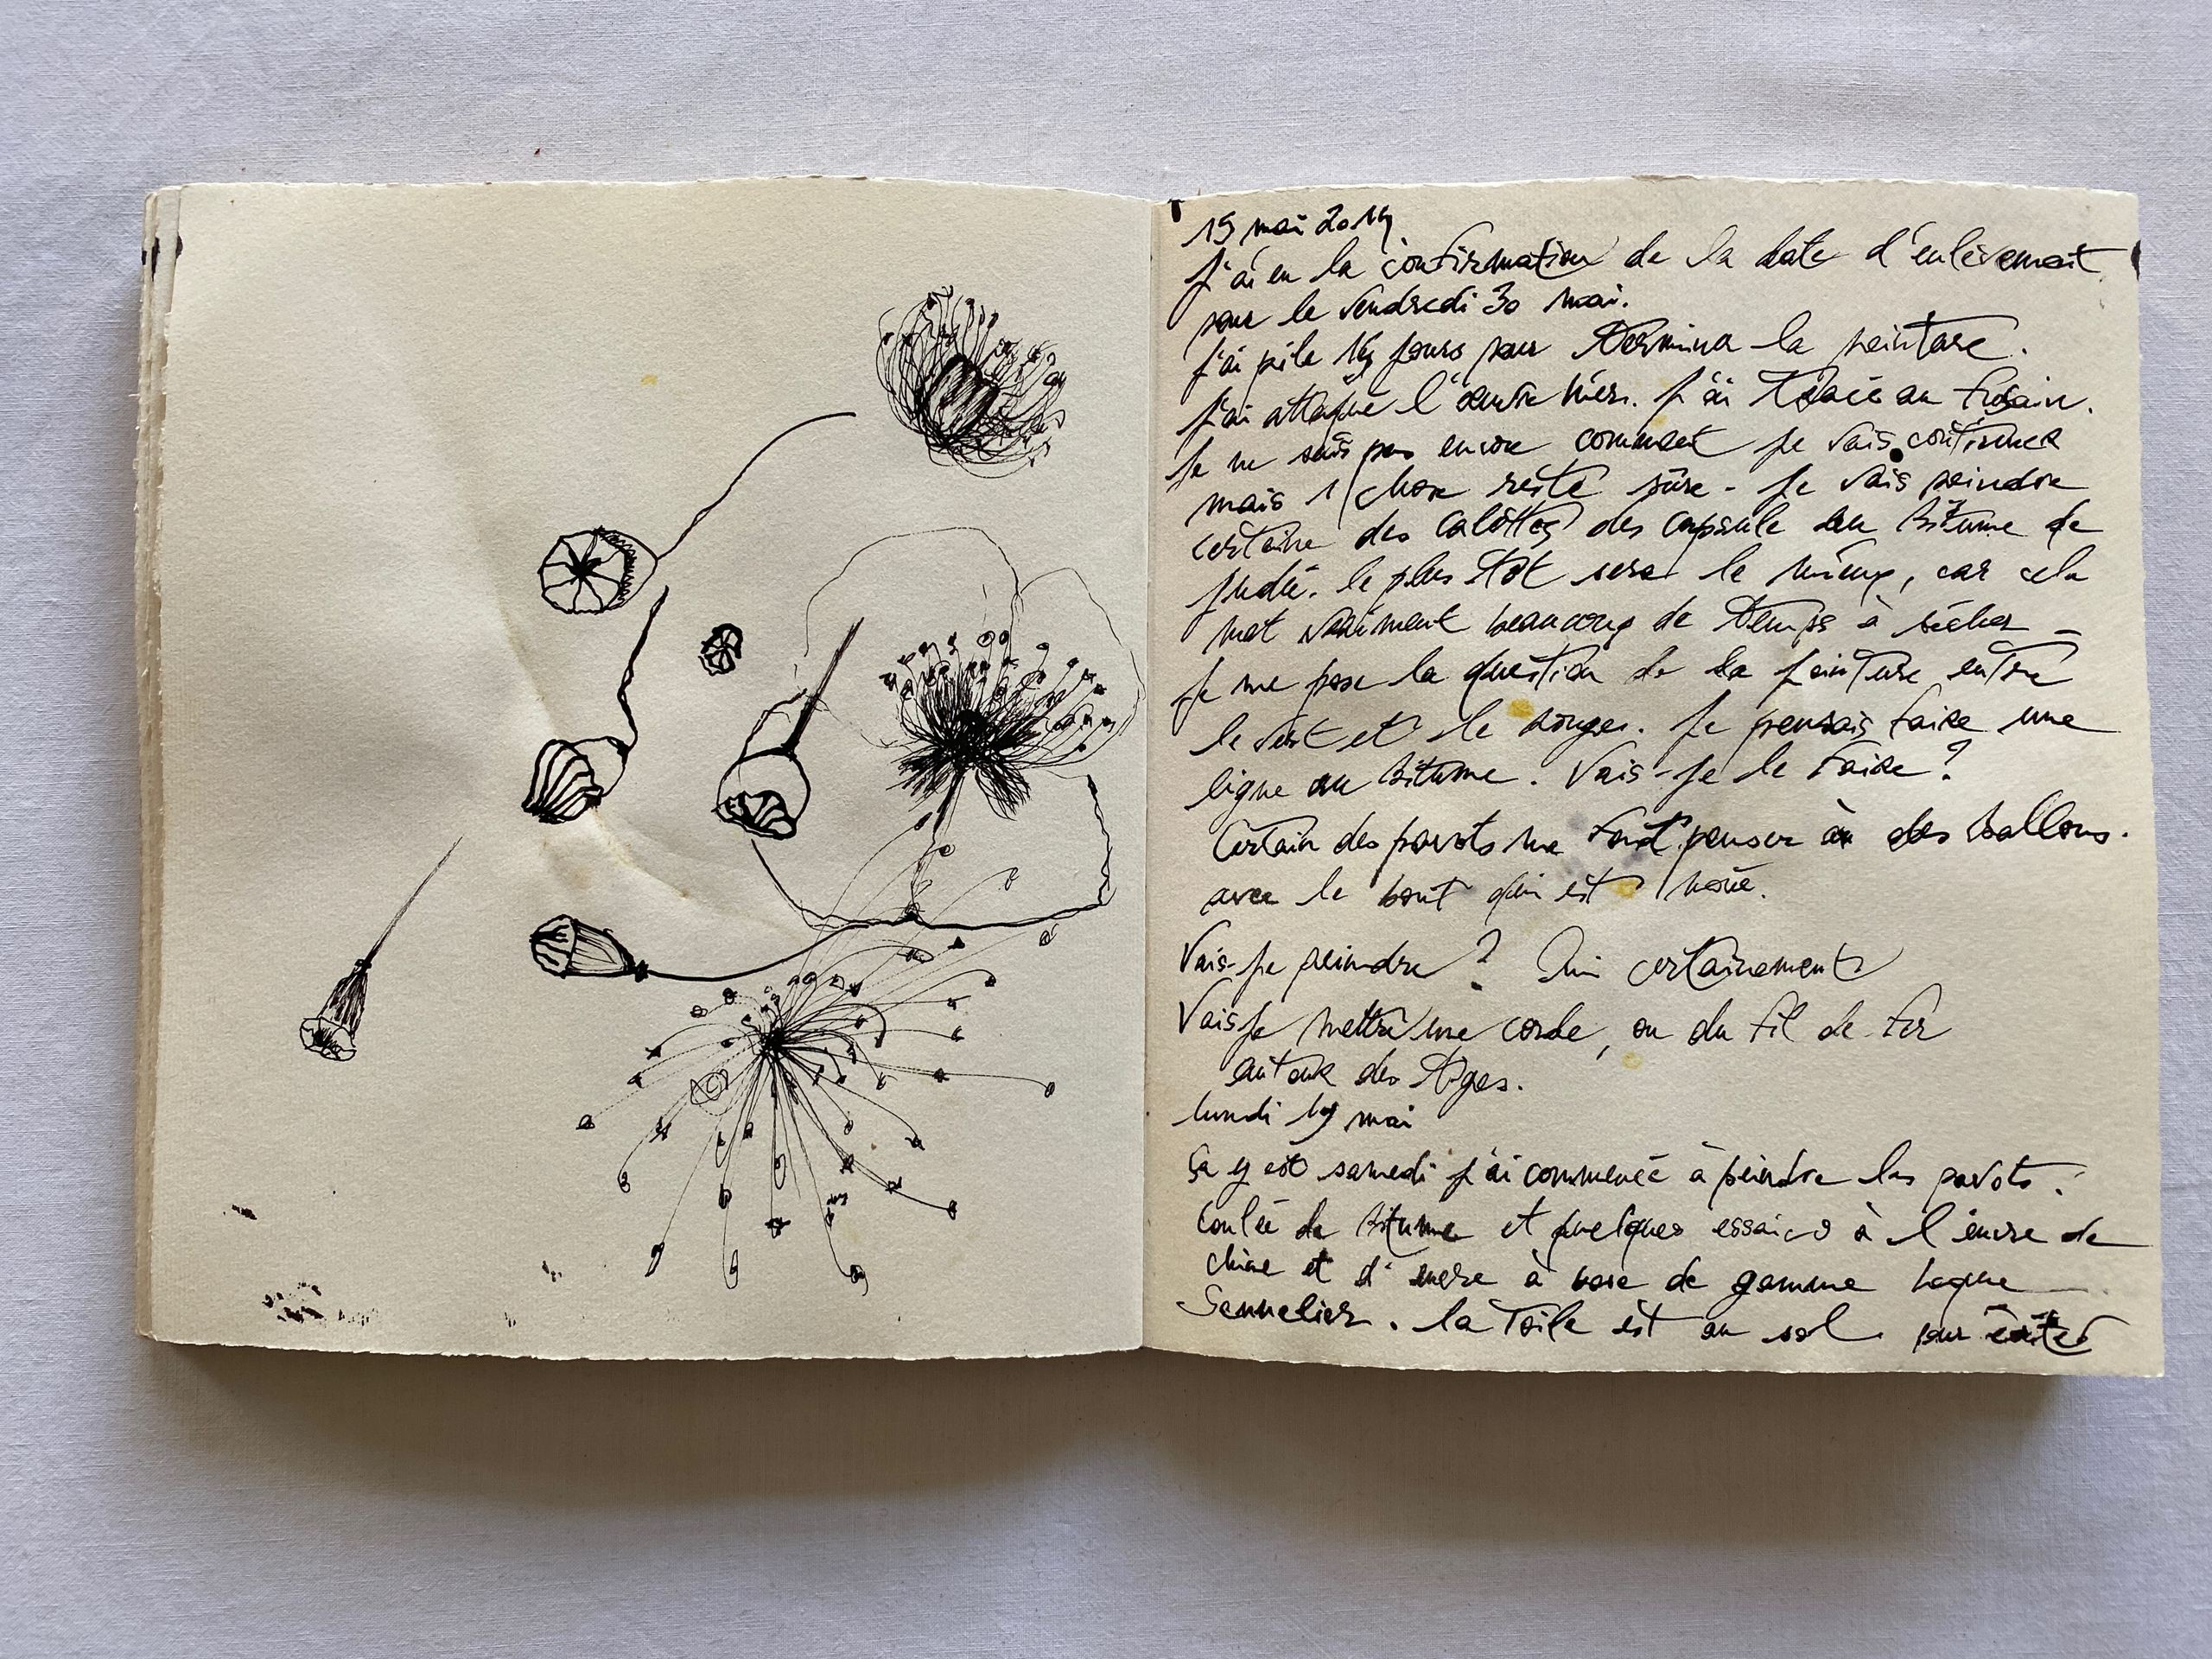 15 mai 2014
J'ai eu la confirmation de la date d'enlèvement
pour le vendredi 30 mai.
J'ai pile 14 jours pour terminer la peinture.
J'ai attaqué l'œuvre hier. J'ai tracé au fusain.
Je ne sais pas encore comment je vais continuer
mais 1 chose reste sûre - Je vais peindre
certaine des calottes des capsule au bitume de
judée. le plus tôt sera le mieux, car cela
met vraiment beaucoup de temps à sécher -
Je me pose la question de la jointure entre
le vert et le rouge. Je pensais faire une
ligne au bitume. Vais-je le faire ?
Certain des pavots me font penser à des ballons.
avec le bout qui est noué.
Vais-je peindre ? Oui certainement
Vais je mettre une corde, ou du fil de fer
autour des tiges.
lundi 19 mai
ça y est samedi j'ai commencé à peindre les pavots.
Coulée de bitume et quelques essais à l'encre de
chine et d'encre à base de gomme laque
Sennelier. la toile est au sol pour éviter